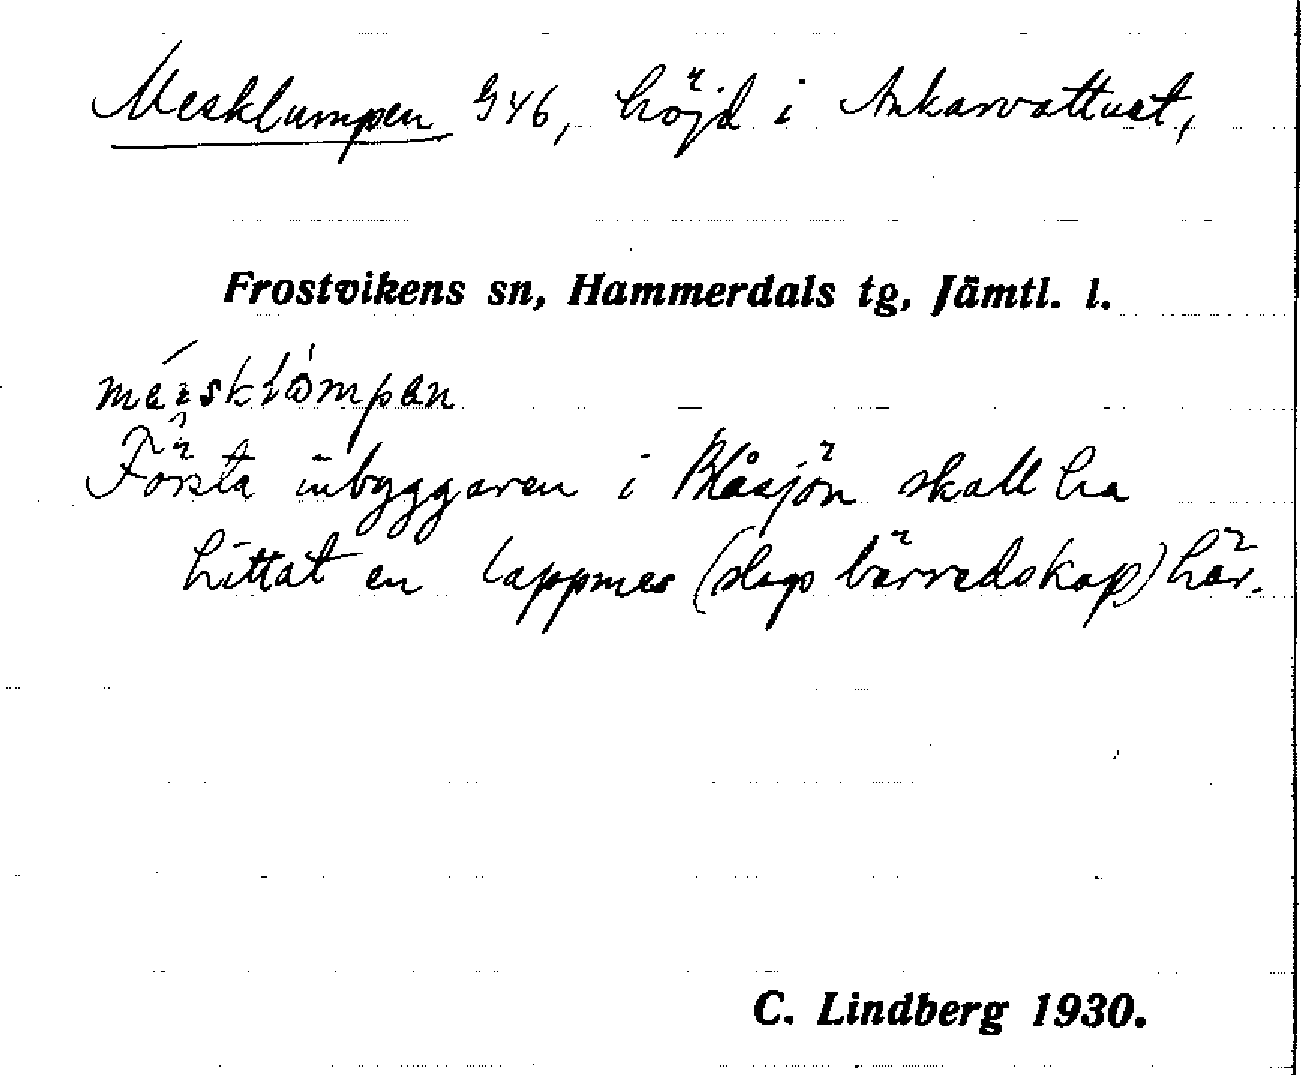 Mesklumpen 946, höjd i Ankarvattnet,
Frostvikens sn, Hammerdals tg, Jämtl. l.
Första inbyggaren i Blåsjön skall ha
hittat en lappmes (slags bärredskap) här.
C. Lindberg 1930.